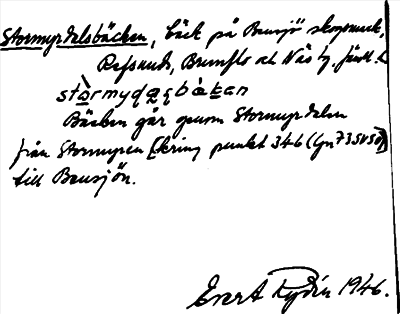 Stormyrdalsbäcken, bäck på Bensjö skogsmark,
Refsunds, Brunflo och Näs tg, Jämtl. l.
stòrmydaɭsbäkan
Bäcken går genom Stormyrdalen
från Stormyren [kring punkt 346 (Gn 73SV50)]
till Bensjön.
Evert Rydin 1946.